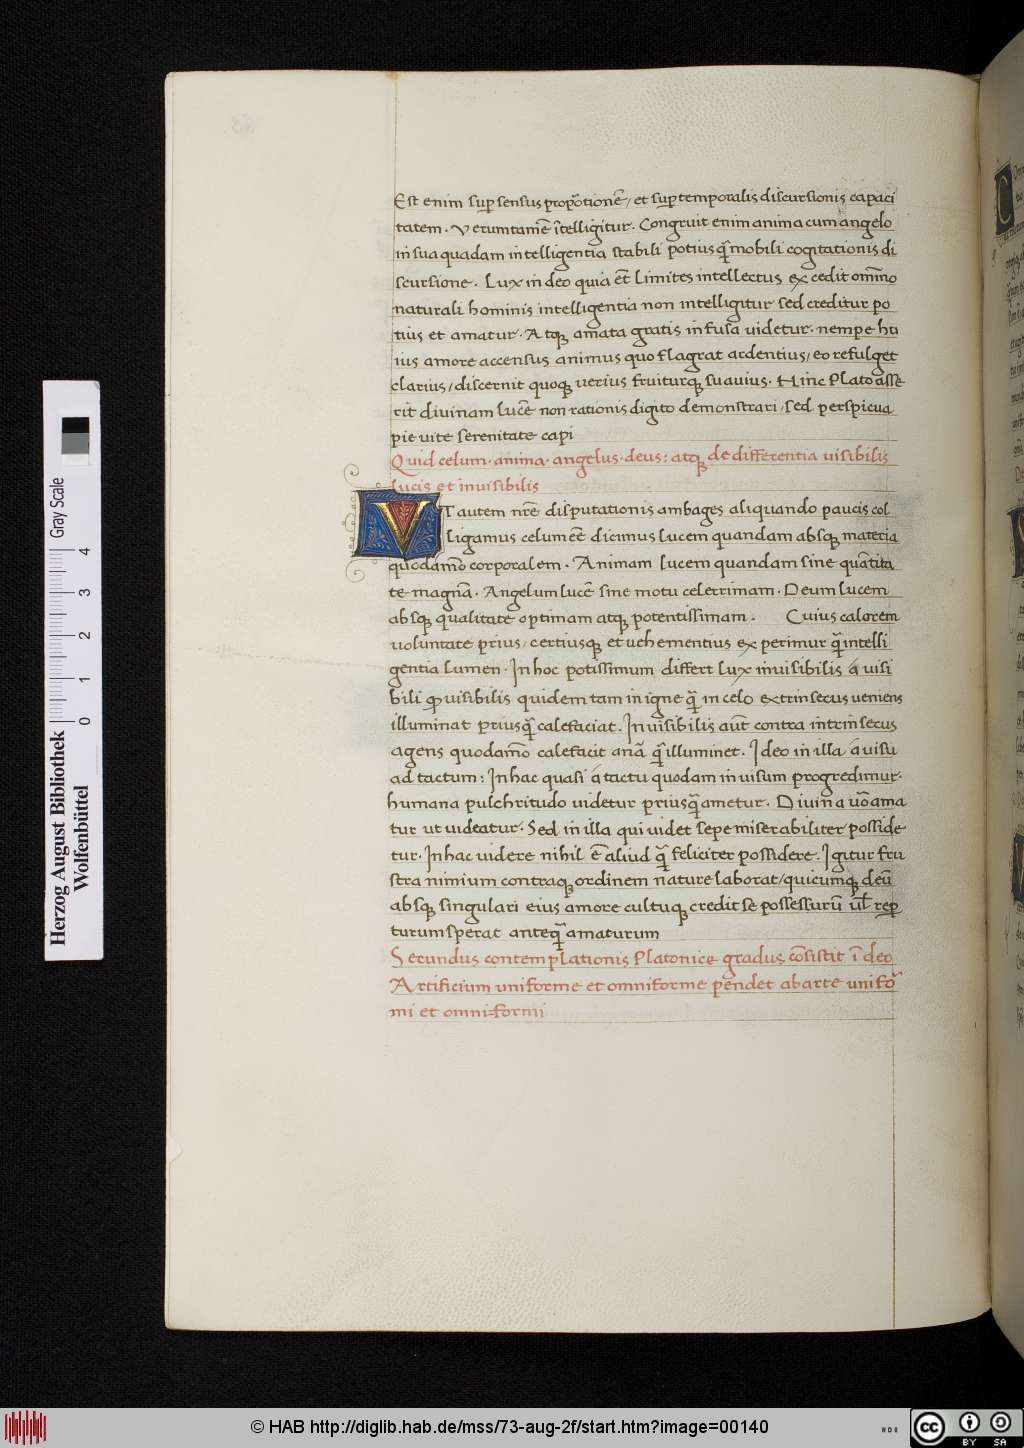 Est enim sup sensus proportionē, et sup temporalis discursionis capaci
tatem. Verumtamē ītelligitur. Congruit enim anima cum angelo
in sua quadam intelligentia stabili potius q̄ mobili cogitationis di
scursione. Lux in deo quia eēt limites intellectus excedit omīno
naturali hominis intelligentia non intelligitur sed creditur po
tius et amatur. Atq; amata gratis infusa uidetur. nempe hu
ius amore accensus animus quo flagrat ardentius, eo refulget
clarius, discernit quoq; uerius fruiturq; suauius. Hinc Plato asse
rit diuinam lucē non rationis digito demonstrari, sed perspicua
pie uite serenitate capi
Quid celum. anima. angelus. deus: atq; de differentia uisibilis
lucis et inuisibilis
VT autem nr̄e disputationis ambages aliquando paucis col
ligamus celum eēt dicimus lucem quandam absq; materia
quodamō corporalem. Animam lucem quandam sine quātita
te magnā. Angelum lucē sine motu celerrimam. Deum lucem
absq; qualitate optimam atq; potentissimam. Cuius calorem
uoluntate prius, certiusq; et uehementius experimur q̄ intelli
gentia lumen. In hoc potissimum differt lux inuisibilis á uisi
bili ꝙ uisibilis quidem tam in igne q̄ in celo extrinsecus ueniens
illuminat priusq̄ calefaciat. Inuisibilis aut̄ contra intrinsecus
agens quodamō calefacit anā q̄ illuminet. Ideo in illa á uisu
ad tactum: In hac quasi á tactu quodam in uisum progredimur.
humana pulchritudo uidetur priusq̄ ametur. Diuina uō ama
tur ut uideatur. Sed in illa qui uidet sepe miserabiliter posside
tur. In hac uidere nihil ē aliud q̄ feliciter possidere. Igitur fru
stra nimium contraq; ordinem nature laborat, quicumq; deū
absq; singulari eius amore cultuq; credit se possessurū ul̄ rep
turum sperat anteq̄ amaturum
Secundus contemplationis Platonice gradus cōsistit ī deo
Artificium uniforme et omniforme pendet ab arte unifo
mi et omni=formi
Herzog August Bibliothek
Wolfenbüttel
Gray Scale
0 1 2 3 4
© HAB http://diglib.hab.de/mss/73-aug-2f/start.htm?image=00140
HAB
cc BY SA